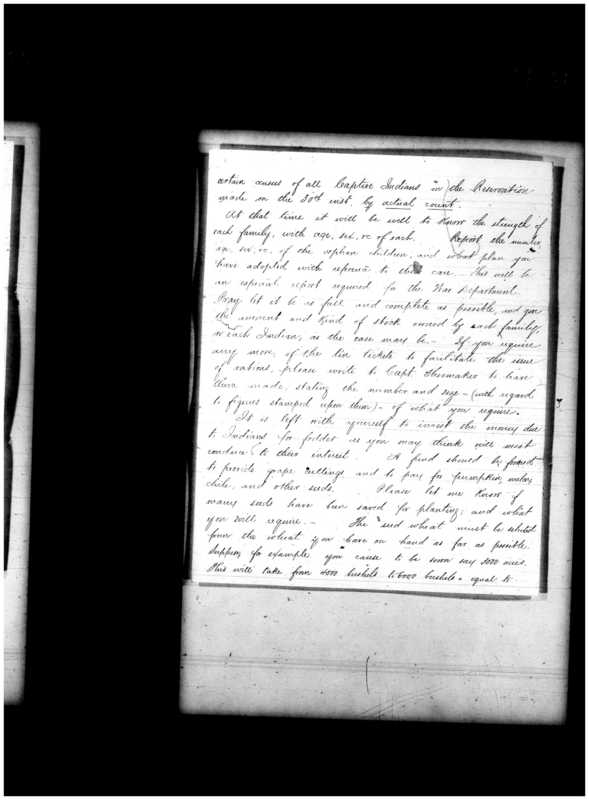 certain census of all Captive Indians in the Reservation
made on the 30th inst. by actual count.
At that time it will be well to know the strength of
each family, with age, sex, &c of each. Report the number,
sex, &c. of the orphan children, and what plan you
have adopted with reference to their care. This will be
an especial report required for the War Department.
Pray let it be as full and complete as possible, and give
the amount and kind of stock owned by each family,
or each Indian, as the case may be. - If you require
any more, of the tin tickets to facilitate the issue
of rations, please write to Capt Shoemaker to have
them made, stating the number and size - (with regard
to figures stamped upon them) - of what you require.
It is left with yourself to invest the money due
to Indians for fodder as you may think will most
conduce to their interest. A fund should be formed
to provide grape cuttings and to pay for pumpkin, melon,
chile, and other seeds. Please let me know if
many seeds have been saved for planting; and what
you will require. - The seed wheat must be selected
from the wheat you have on hand as far as possible.
Suppose for example you cause to be sown say 3000 acres.
This will take from 4000 bushels to 6000 bushels. equal to